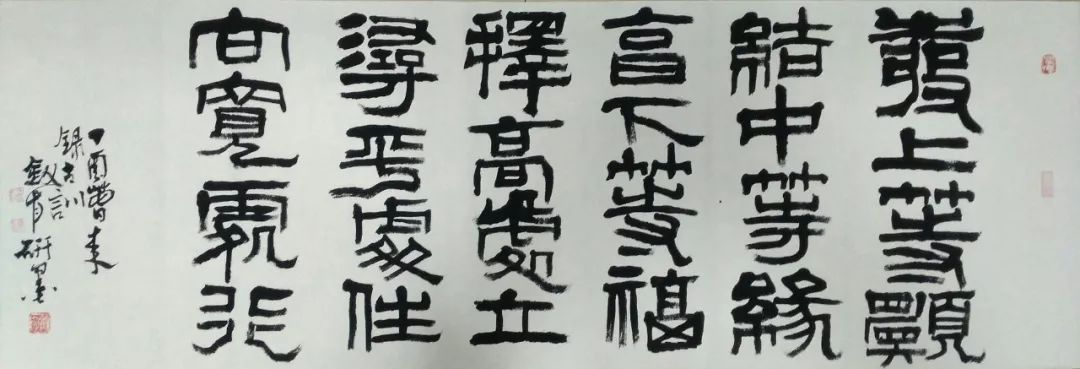 發上等願
結中等緣
享下等福
釋高處立
尋平處住
向寬處行
丁酉
錄古訓
研墨